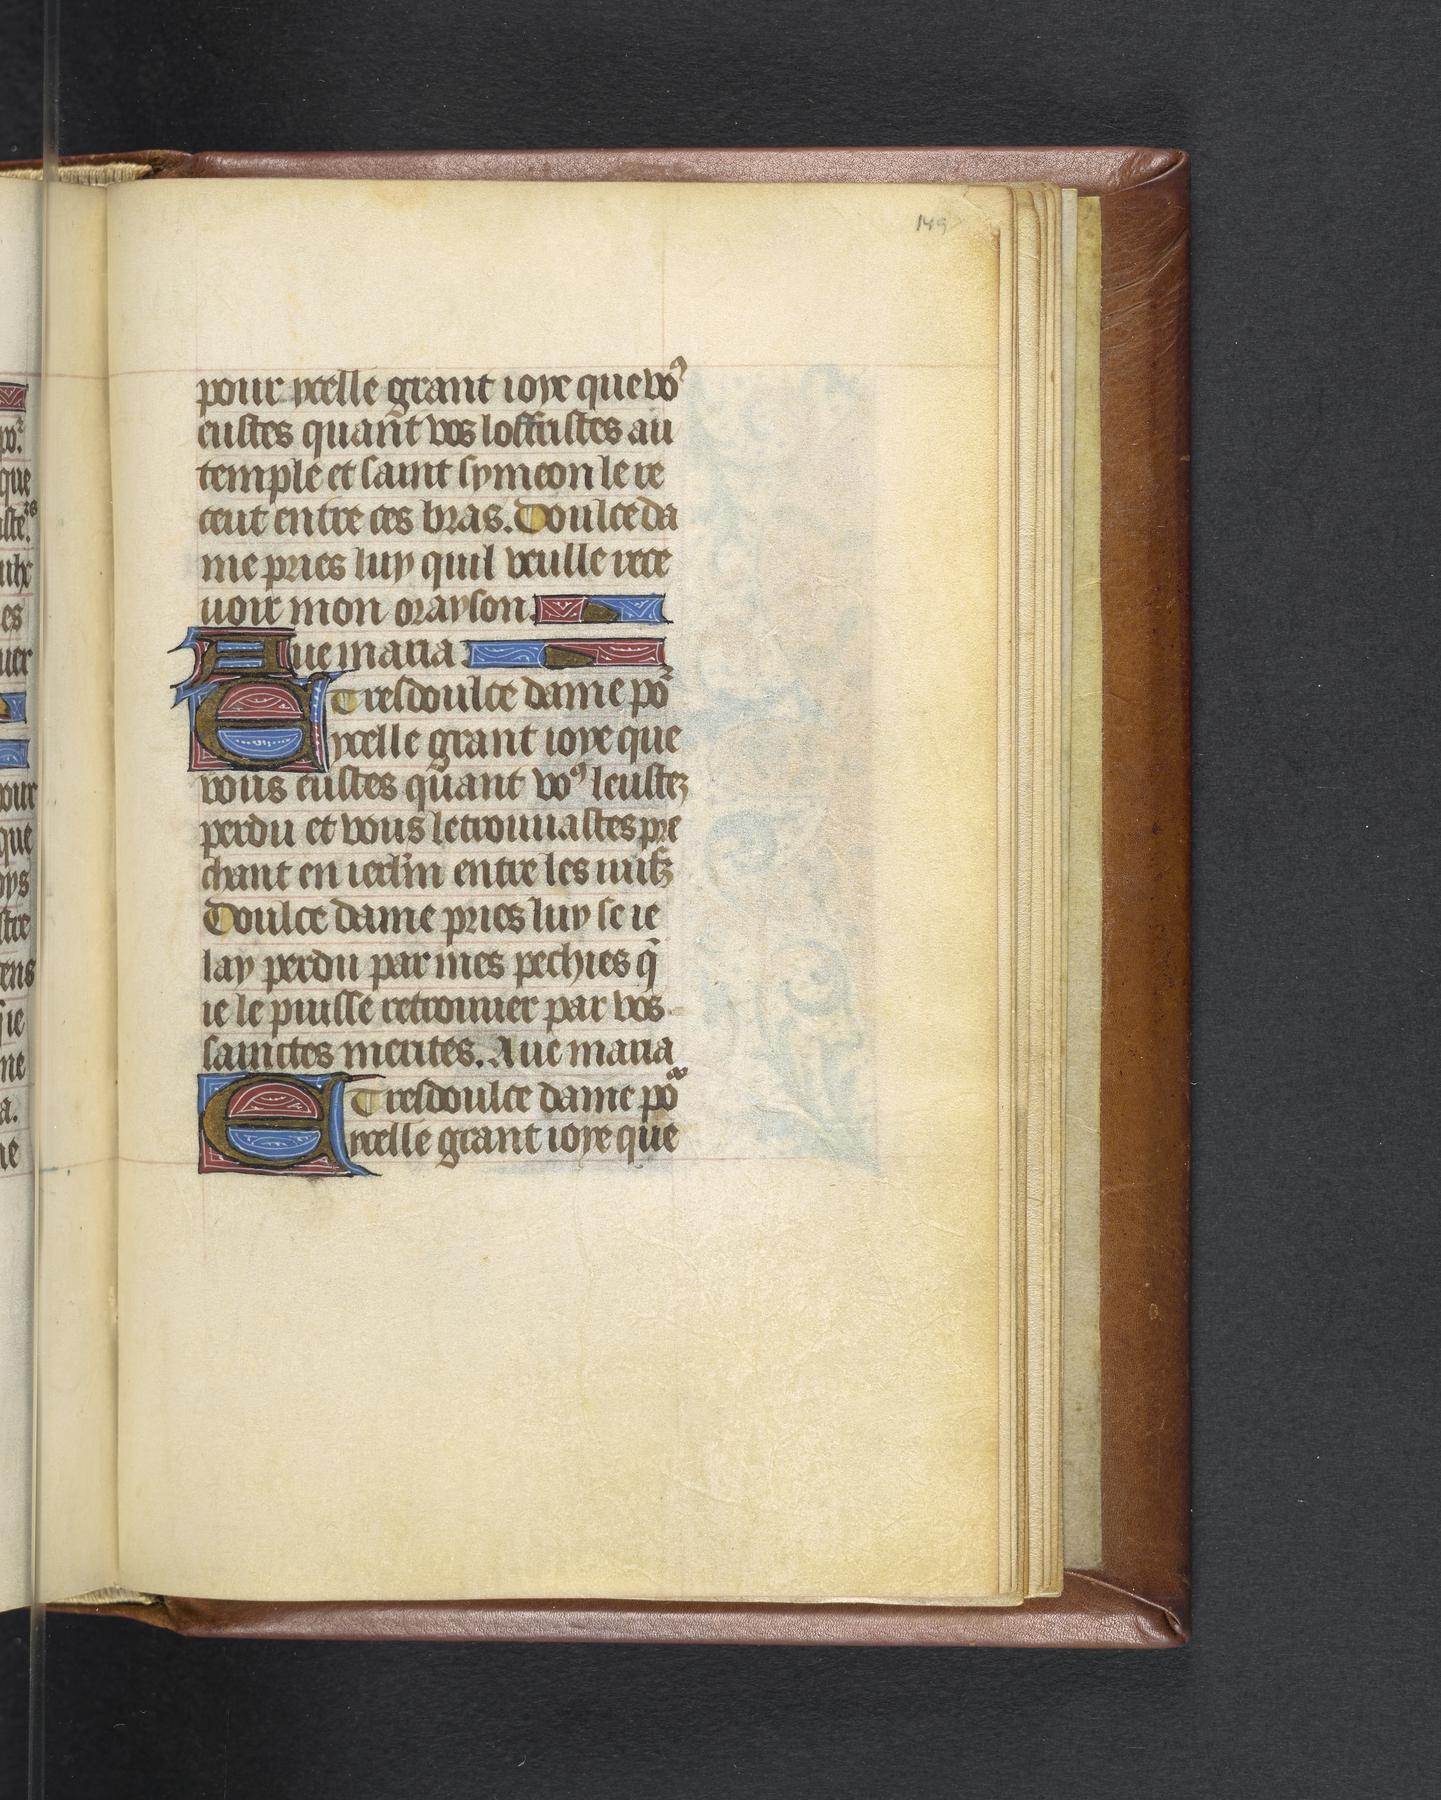 149
pour ycelle grant ioye que voꝰ
eustes quant vos loffristes au
temple et saint symeon le re
ceut entre ces bras. Doulce da
me pries luy quil veulle rece
uoir mon orayson.
Aue maria
E Tresdoulce dame por
ycelle grant ioye que
vous eustes quant voꝰ leustez
perdu et vous le trouuastes pre
chant en ierlm̄ entre les iuifz
Doulce dame pries luy se ie
lay perdu par mes pechies q̄
ie le puisse retrouuer par vos
sainctes merites. Aue maria
E Tresdoulce dame por
ycelle grant ioye que